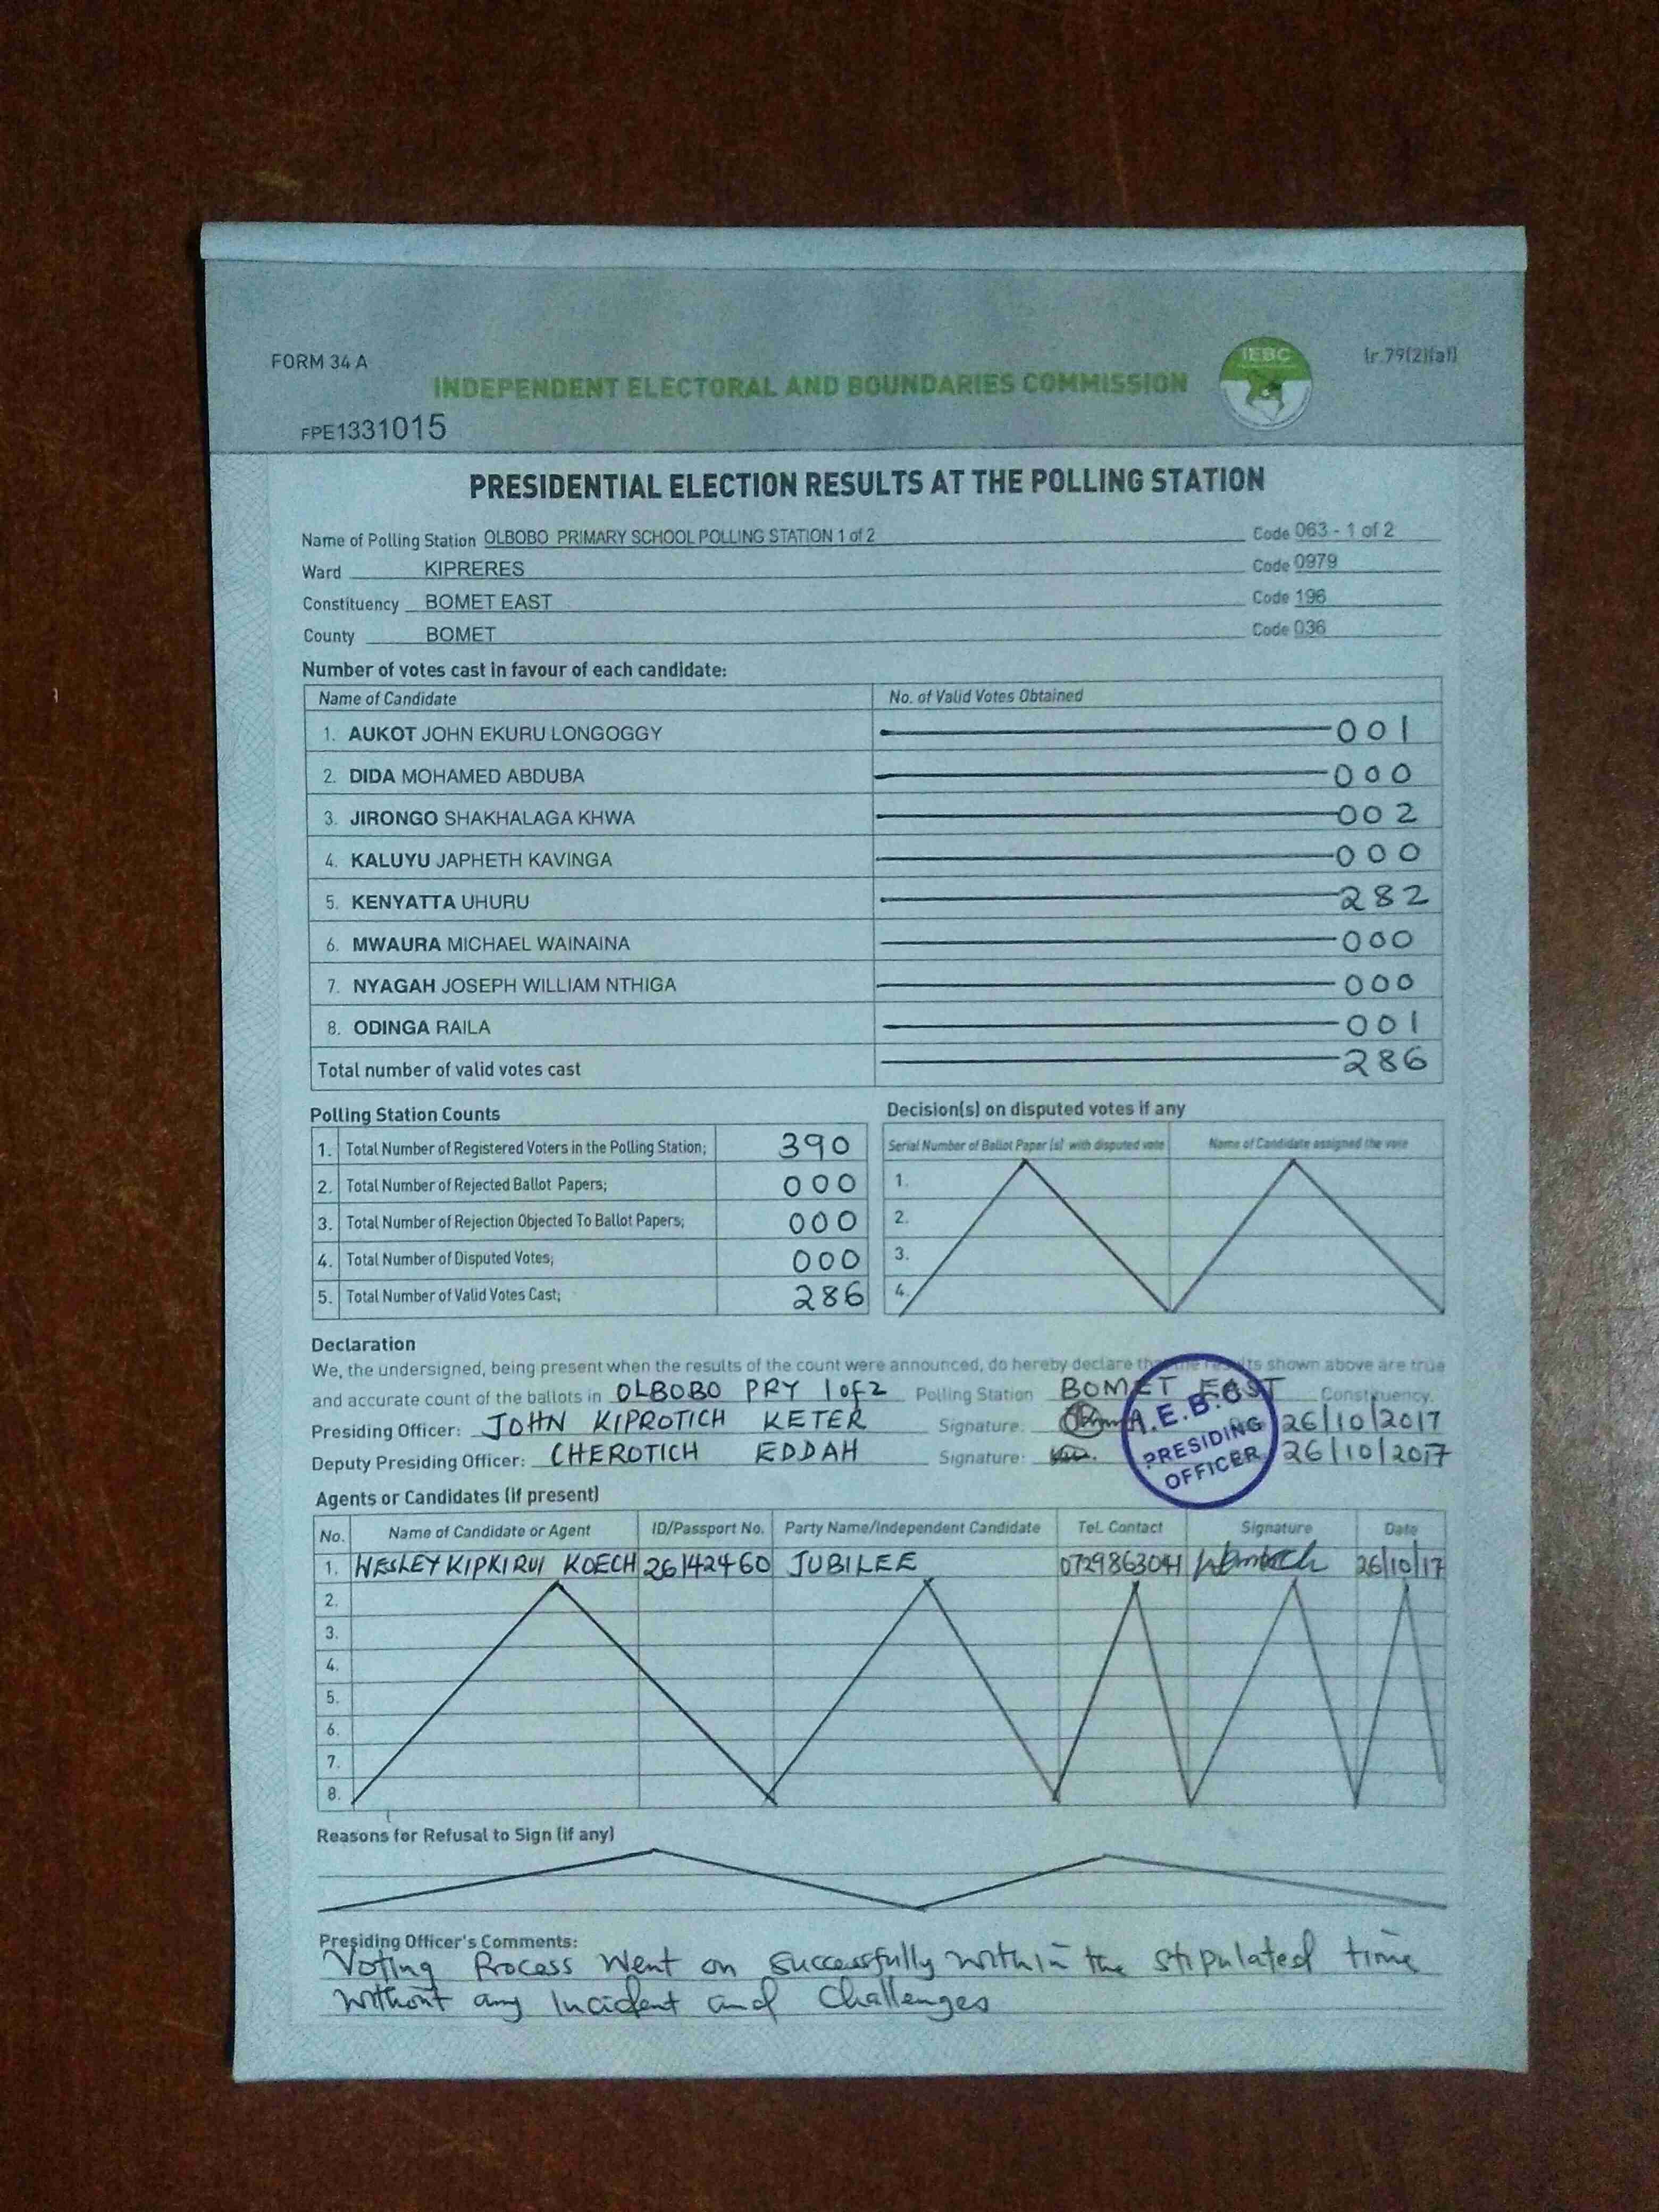 FORM 34 A
IEBC
(r.79(2)(a))
INDEPENDENT ELECTORAL AND BOUNDARIES COMMISSION
FPE1331015
PRESIDENTIAL ELECTION RESULTS AT THE POLLING STATION
Name of Polling Station OLBOBO PRIMARY SCHOOL POLLING STATION 1 of 2 Code 063 - 1 of 2
Ward KIPRERES Code 0979
Constituency BOMET EAST Code 196
County BOMET Code 036
Number of votes cast in favour of each candidate:
Name of Candidate No. of Valid Votes Obtained
1. AUKOT JOHN EKURU LONGOGGY 001
2. DIDA MOHAMED ABDUBA 000
3. JIRONGO SHAKHALAGA KHWA 002
4. KALUYU JAPHETH KAVINGA 000
5. KENYATTA UHURU 282
6. MWAURA MICHAEL WAINAINA 000
7. NYAGAH JOSEPH WILLIAM NTHIGA 000
8. ODINGA RAILA 001
Total number of valid votes cast 286
Polling Station Counts
1. Total Number of Registered Voters in the Polling Station; 390
2. Total Number of Rejected Ballot Papers; 000
3. Total Number of Rejection Objected To Ballot Papers; 000
4. Total Number of Disputed Votes; 000
5. Total Number of Valid Votes Cast; 286
Decision(s) on disputed votes if any
Serial Number of Ballot Paper (s) with disputed vote Name of Candidate assigned the vote
1.
2.
3.
4.
Declaration
We, the undersigned, being present when the results of the count were announced, do hereby declare that the results shown above are true
and accurate count of the ballots in OLBOBO PRY 1 of 2 Polling Station BOMET EAST Constituency.
Presiding Officer: JOHN KIPROTICH KETER Signature: 26/10/2017
Deputy Presiding Officer: CHEROTICH EDDAH Signature: 26/10/2017
PRESIDING
OFFICER
Agents or Candidates (if present)
No. Name of Candidate or Agent ID/Passport No. Party Name/Independent Candidate Tel. Contact Signature Date
1. WESLEY KIPKIRUI KOECH 26142460 JUBILEE 0729863041 26/10/17
2.
3.
4.
5.
6.
7.
8.
Reasons for Refusal to Sign (if any)
Presiding Officer's Comments:
Voting Process Went on successfully within the stipulated time
without any Incident and Challenges